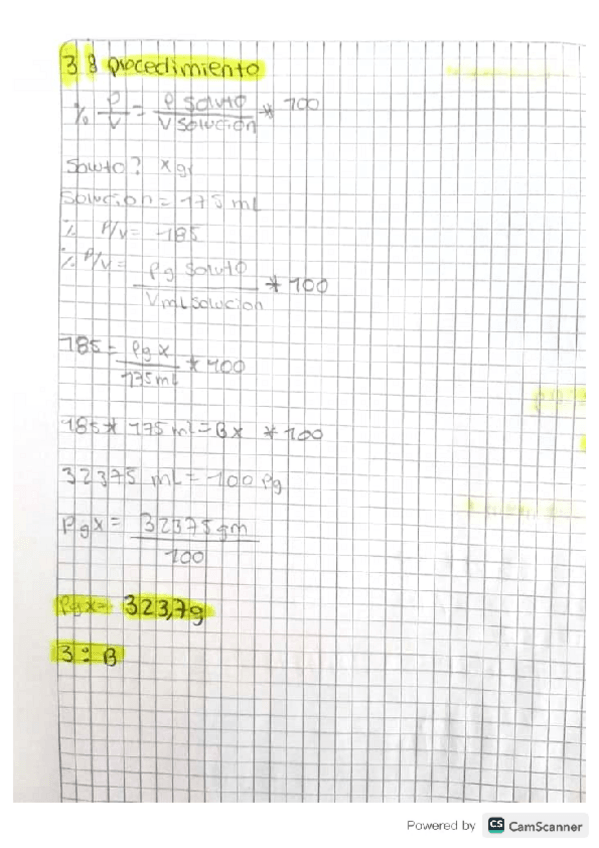 3 8 procedimiento
% P/V = P soluto / V solucion * 100
Soluto? x gr
Solucion = 175 mL
% P/V = 185
% P/V = Pg soluto / V mL solucion * 100
185 = Pg x / 175 mL * 100
185 * 175 ml = Gx * 100
32375 mL = 100 Pg
Pg x = 32375 gm / 100
Pg x = 323,7g
3: B
Powered by CS CamScanner